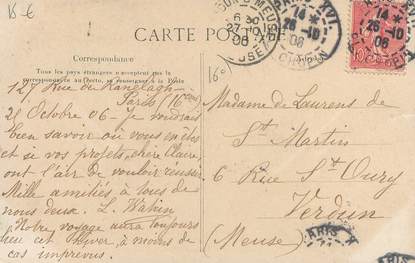 15 €
CARTE POSTALE
Correspondance
Tous les pays étrangers n'acceptent pas la
correspondance au recto, se renseigner à la Poste
127 Rue du Ranelagh
Paris (16ème)
28 Octobre 06 - Je voudrais
bien savoir où vous en êtes
et si vos projets, chère Claire,
ont l'air de vouloir réussir
Mille amitiés à tous de
nous deux. L.
Notre voyage aura toujours
lieu cet hyver, à moins de
cas imprévus.
16°
Madame de Laurens de
St Martin
6 Rue St Oury
Verdun
(Meuse)
PARIS XVI
14 *
28 -10
06
R. CHOPIN
14 *
28 -10
06